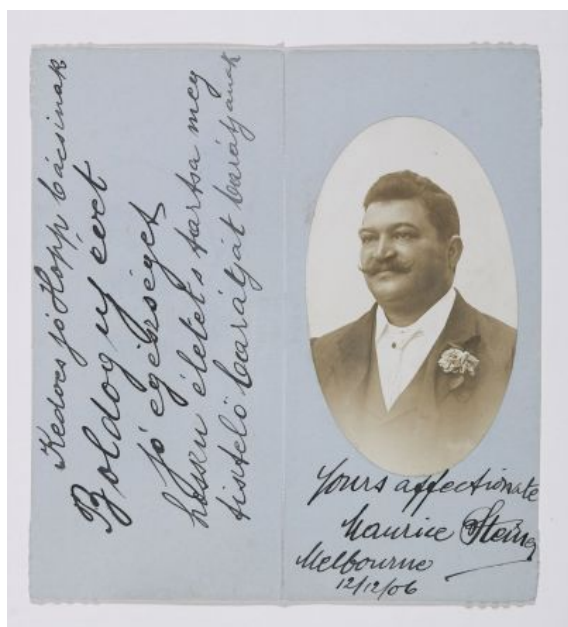 Kedves jó Hopp bácsinak
Boldog uj évet
jó egészséget
hosszu életet s tartsa meg
tisztelő barátját barátjának
Yours affectionate
Maurice Steiner
Melbourne
12/12/06